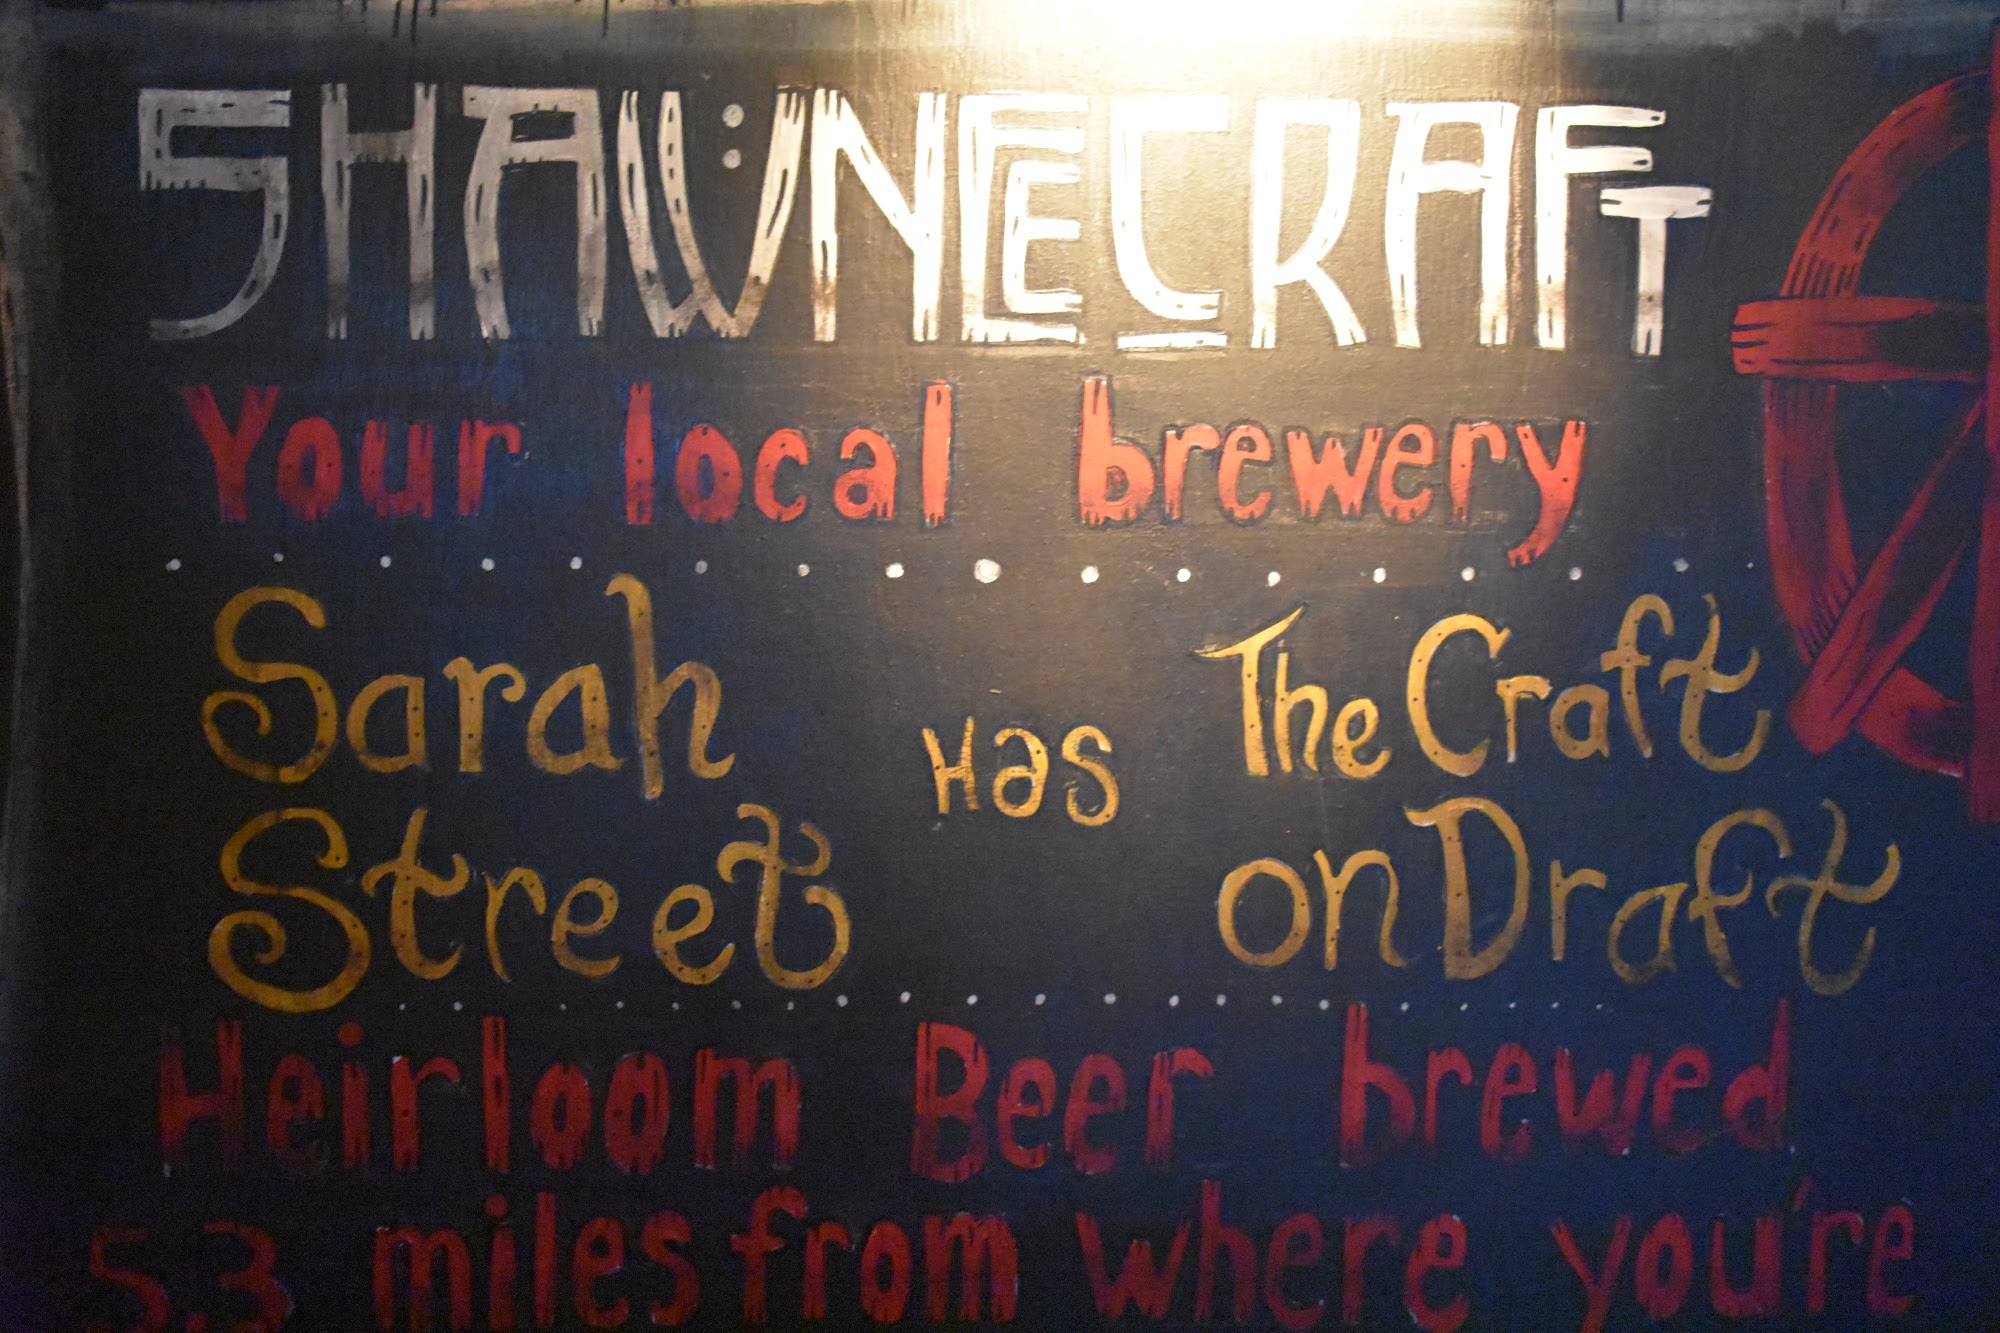 SHAWNEECRAFT
Your local brewery
Sarah Street Has The Craft on Draft
Heirloom Beer brewed
5.3 miles from where you're